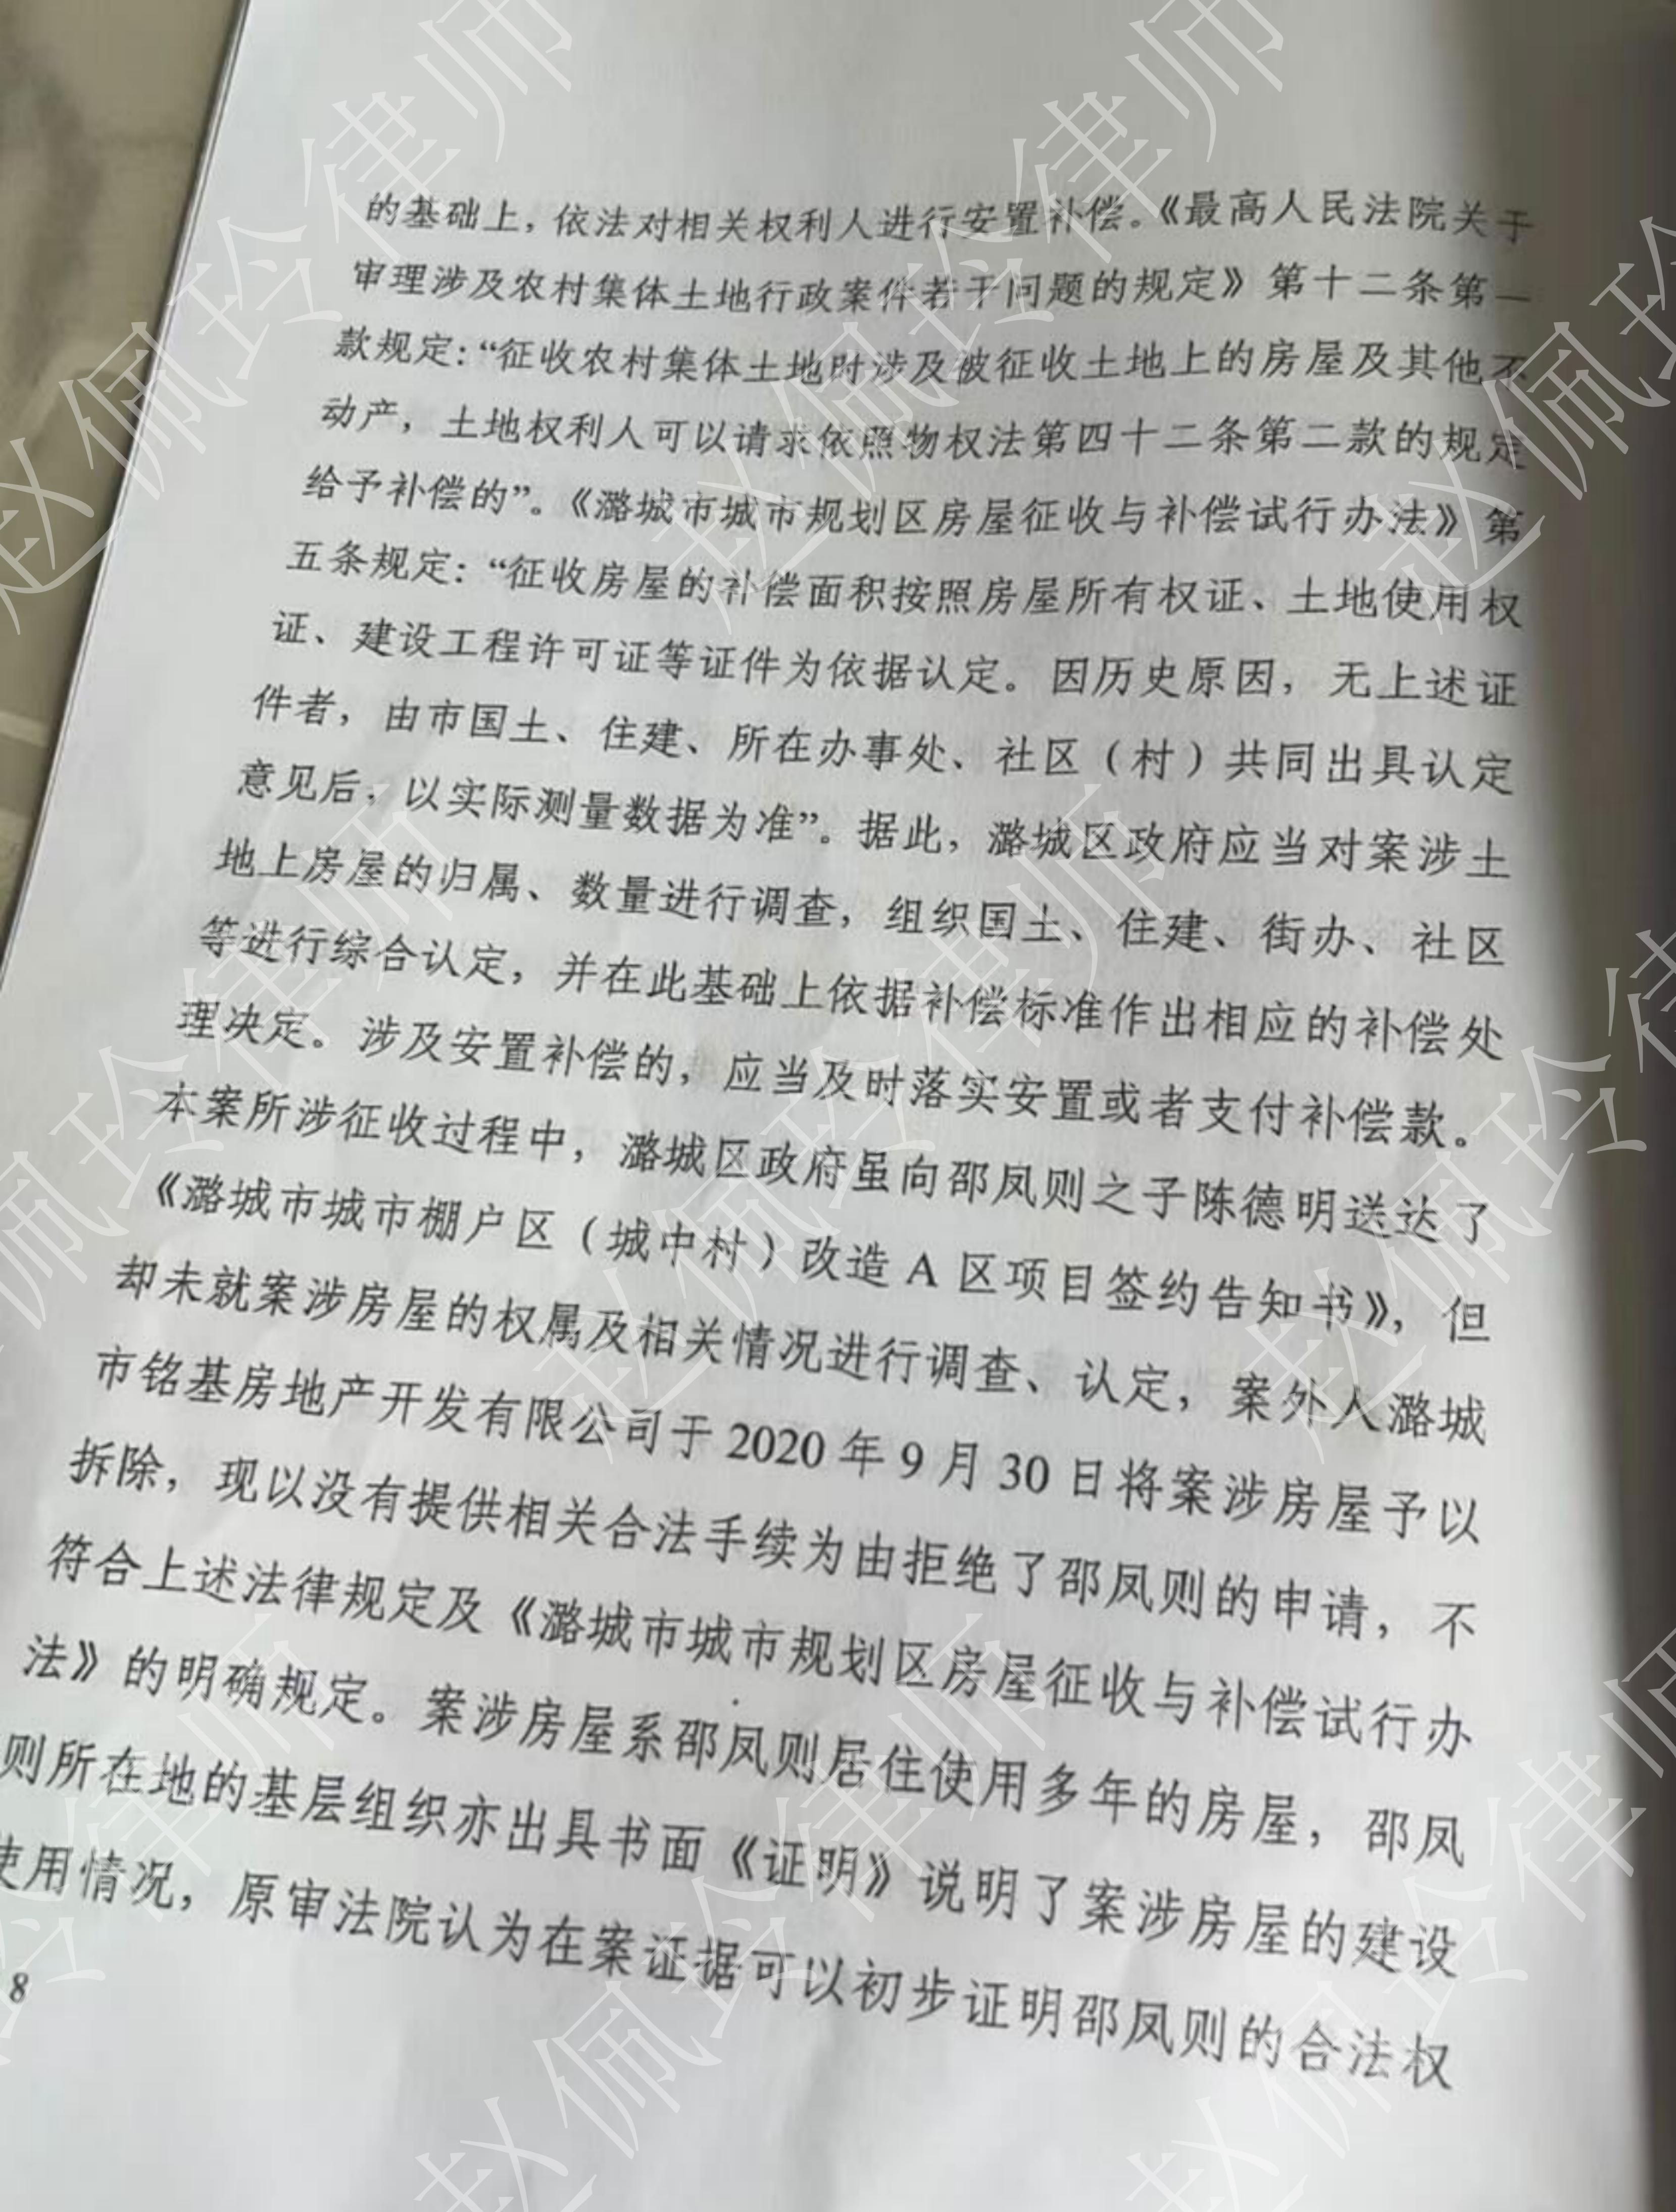 的基础上，依法对相关权利人进行安置补偿。《最高人民法院关于
审理涉及农村集体土地行政案件若干问题的规定》第十二条第一
款规定：“征收农村集体土地时涉及被征收土地上的房屋及其他不
动产，土地权利人可以请求依照物权法第四十二条第二款的规定
给予补偿的”。《潞城市城市规划区房屋征收与补偿试行办法》第
五条规定：“征收房屋的补偿面积按照房屋所有权证、土地使用权
证、建设工程许可证等证件为依据认定。因历史原因，无上述证
件者，由市国土、住建、所在办事处、社区（村）共同出具认定
意见后，以实际测量数据为准”。据此，潞城区政府应当对案涉土
地上房屋的归属、数量进行调查，组织国土、住建、街办、社区
等进行综合认定，并在此基础上依据补偿标准作出相应的补偿处
理决定。涉及安置补偿的，应当及时落实安置或者支付补偿款。
本案所涉征收过程中，潞城区政府虽向邵凤则之子陈德明送达了
《潞城市城市棚户区（城中村）改造 A 区项目签约告知书》，但
却未就案涉房屋的权属及相关情况进行调查、认定，案外人潞城
市铭基房地产开发有限公司于 2020 年 9 月 30 日将案涉房屋予以
拆除，现以没有提供相关合法手续为由拒绝了邵凤则的申请，不
符合上述法律规定及《潞城市城市规划区房屋征收与补偿试行办
法》的明确规定。案涉房屋系邵凤则居住使用多年的房屋，邵凤
则所在地的基层组织亦出具书面《证明》说明了案涉房屋的建设
使用情况，原审法院认为在案证据可以初步证明邵凤则的合法权
8
赵佩玲律师